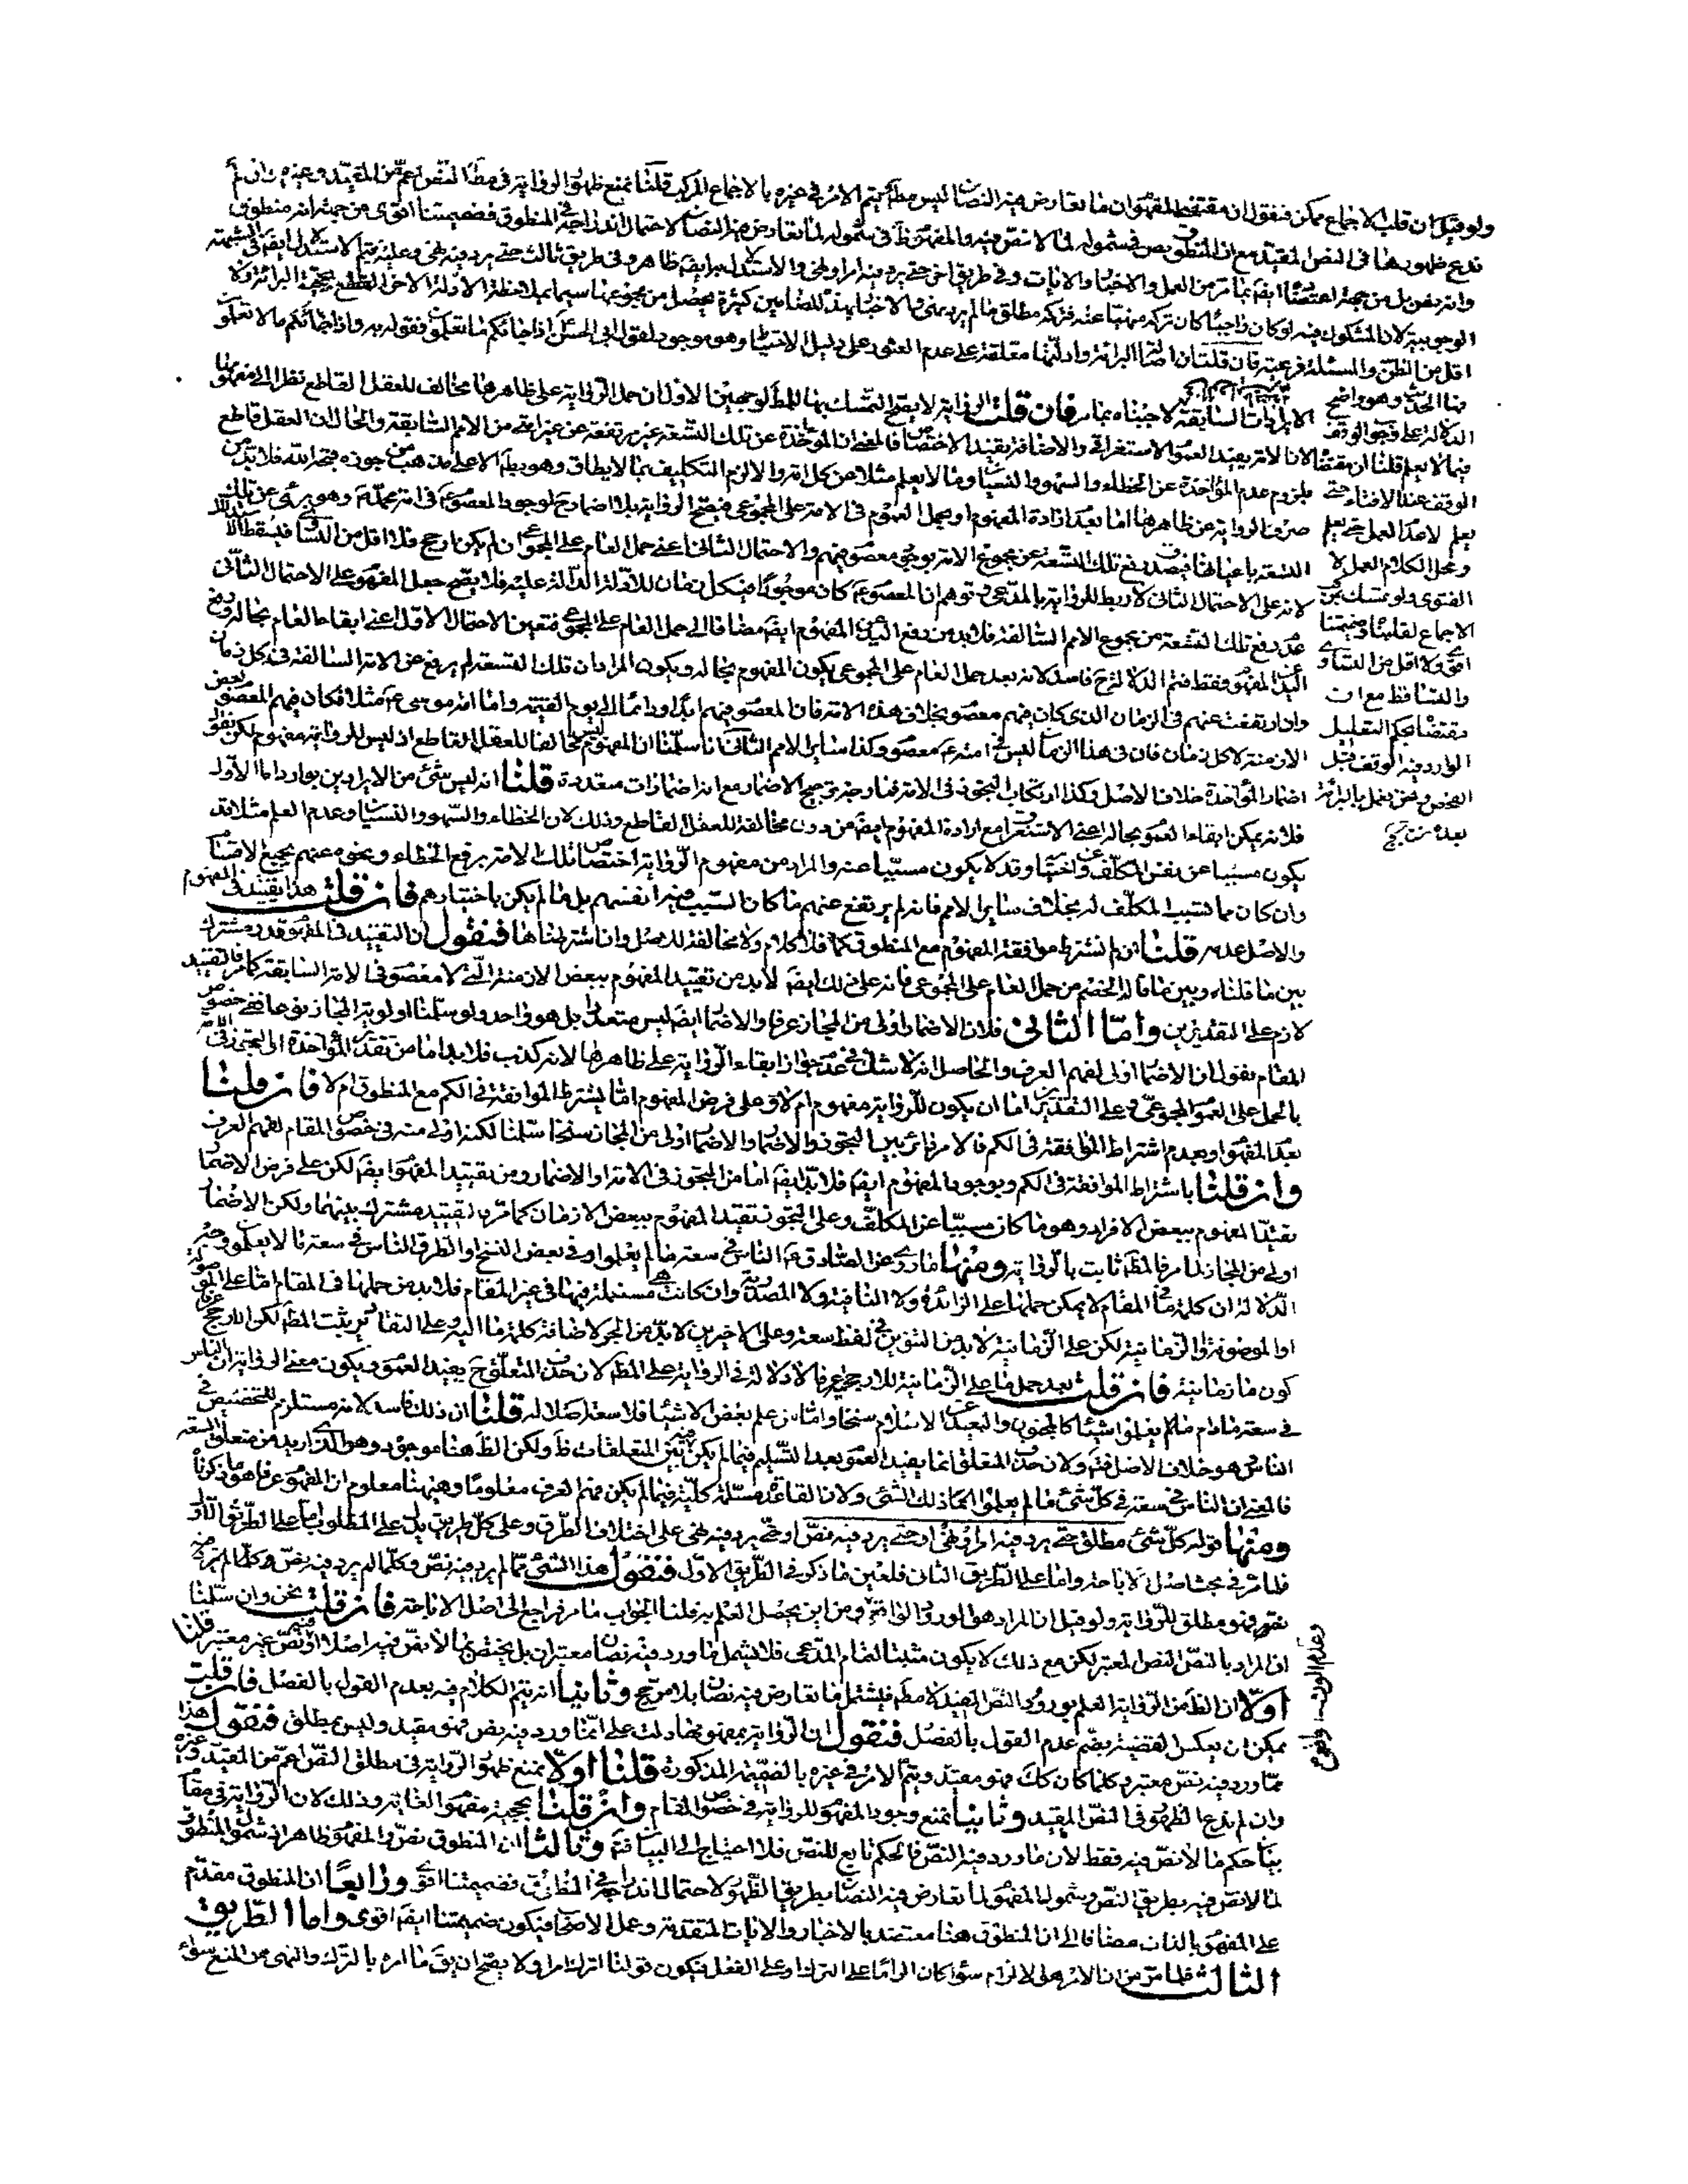 ولو قيل ان قلب الاجماع ممكن فنقول ان مقتضى المفهوم ان ما تعارض فيه النصان ليس مطلقا فيتم الامر فى غيره بالاجماع المركب قلنا نمنع ظهور الرواية فى مطلق النص اعم من المقيد وغيره وان لم
ندع ظهورها فى النص المقيد مع ان المنطوق نص فى شموله لما لا نص فيه والمفهوم ظ فى شموله لما تعارض فيه النصان لاحتمال اندراجه فى المنطوق فضميمتنا اقوى من جهة انه منطوق
وانه نص بل من جهة اعتضادنا ايضا بما مر من العمل والاخبار والايات وفى طريق اخر حتى يرد فيه امر او نهى والاستدلال به ايضا ظاهر وفى طريق ثالث حتى يرد فيه نهى وعليه يتم الاستدلال ايضا فى الشبهة
الوجوبية لان المشكوك فيه لو كان واجبا كان تركه منهيا عنه فتركه مطلق ما لم يرد نهى والاخبار بهذه المضامين كثيرة يحصل من مجموعها سيما بملاحظة الادلة الاخر القطع بحجية البرائة ولا
اقل من الظن والمسئلة فرعية فان قلت ان اصالة البرائة وادلتها معلقة على عدم العثور على دليل الاحتياط وهو موجود لقول ابى الحسن اذا جائكم ما تعلمون فقولوا به واذا جائكم ما لا تعلمون
فها الحديث وهو واضح الدلالة على وجوب الوقف فيما لا يعلم قلنا ان مقتضاه
الوقف عند الافتاء حتى يعلم لا عند العمل حتى يعلم ومحل الكلام العمل لا
الفتوى ولو تمسك بعدم الاجماع لقلبناه وضميمتنا اقوى ولا اقل من التساوى
والتساقط مع ان مقتضاه بحكم التعليل الوارد فيه الوقف قبل
الفحص ونحن نعمل بالبرائة بعده
الايرادات السابقة لاجبناه بما مر فان قلت الرواية لا يصح التمسك بها للمط لوجهين الاول ان حمل الرواية على ظاهرها مخالف للعقل القاطع نظرا الى مفهومها
لان الامة يفيد العموم الاستغراقى والاضافة يفيد الاختصاص فالمعنى ان المؤاخذة عن تلك التسعة غير مرتفعة عن غير امتى من الامم السابقة والحال ان العقل قاطع
بلزوم عدم المؤاخذة عن الخطاء والسهو والنسيان وما لا يعلم مثلا عن كل امة والا لزم التكليف بما لا يطاق وهو بط الا على مذهب من جوزه قبحه الله فلا بد من
صرف الرواية عن ظاهرها اما بعدم ارادة المفهوم او بحمل العموم فى الامة على المجموعى فيصح الرواية بلا اضمار ح لوجود المعصوم فى امة محمد ص وهو برئ عن تلك
التسعة باعيانها فيصدق رفع تلك التسعة عن مجموع الامة بوجود معصوم فيهم والاحتمال الثانى اعنى حمل العام على المجموعى ان لم يكن ارجح فلا اقل من التساوى فيسقط الاستدلال
لانه على الاحتمال الثانى لا ربط للرواية بالمدعى وتوهم ان المعصوم كان موجودا فى كل زمان للادلة الدالة عليه فلا يصح جعل المفهوم على الاحتمال الثانى
عدم رفع تلك التسعة من مجموع الامم السالفة فلا بد من رفع اليد عن المفهوم ايضا مضافا الى حمل العام على المجموعى فتعين الاحتمال الاول اعنى ابقاء العام بحاله ورفع
اليد عن المفهوم فقط فتم الدلالة ح فاسد لانه بعد حمل العام على المجموعى يكون المفهوم بحاله ويكون المراد ان تلك التسعة لم يرفع عن الامة السالفة فى كل زمان
وان ارتفعت عنهم فى الزمان الذى كان فيهم معصوم بخلاف هذه الامة فان المعصوم فيهم ابدا ودائما الى يوم القيمة واما امة موسى ع مثلا فكان فيهم المعصوم بعض
الازمنة لا كل زمان فان فى هذا الزمان ليس فى امته ع معصوم وكذا سائر الامم الثانى انا سلمنا ان المفهوم ليس مخالفا للعقل القاطع اذ ليس للرواية مفهوم لكن نقول
اضمار المؤاخذة خلاف الاصل وكذا ارتكاب التجوز فى الامة فما وجه ترجيح الاضمار مع ان اضمارات متعددة قلنا انه ليس شئ من الايرادين بوارد اما الاول
فلانه يمكن ابقاء العموم بحاله اعنى الاستغراق مع ارادة المفهوم ايضا من دون مخالفة للعقل القاطع وذلك لان الخطاء والسهو والنسيان وعدم العلم مثلا قد
يكون مسببا عن نفس المكلف واختياره وقد لا يكون مسببا عنه والمراد من مفهوم الرواية اختصاص تلك الامة برفع الخطاء ونحوه عنهم بجميع الاصناف
وان كان مما تسبب المكلف له بخلاف سائر الامم فانه لم يرتفع عنهم ما كان السبب فيه انفسهم بل ما لم يكن باختيارهم فان قلت هذا تقييد فى المفهوم
والاصل عدمه قلنا ان لم نشترط موافقة المفهوم مع المنطوق كما فلا كلام ولا مخالفة للاصل وان اشترطناها فنقول ان التقييد فى المفهوم قدر مشترك
بين ما قلناه وبين ما قاله الخصم من حمل العام على المجموعى فانه على ذلك ايضا لا بد من تقييد المفهوم ببعض الازمنة التى لا معصوم فى الامة السابقة كما مر فالتقييد
لازم على التقديرين واما الثانى فلان الاضمار اولى من المجاز عرفا والاضمار ايضا ليس متعددا بل هو واحد ولو سلمنا اولوية المجاز نوعا ففى خصوص
المقام نقول ان الاضمار اولى لفهم العرف والحاصل انه لا شك فى عدم جواز ابقاء الرواية على ظاهرها لانه كذب فلا بد اما من تقدير المؤاخذة او التجوز فى الامة
بالحمل على العموم المجموعى وعلى التقديرين اما ان يكون للرواية مفهوم ام لا وعلى فرض المفهوم اما يشترط الموافقة فى الكم مع المنطوق ام لا فان قلنا
بعدم المفهوم او بعدم اشتراط الموافقة فى الكم فالامر دائر بين التجوز والاضمار والاضمار اولى من المجاز سنخا سلمنا لكنه اولى منه فى خصوص المقام لفهم العرف
وان قلنا باشتراط الموافقة فى الكم وبوجود المفهوم ايضا فلا بد ايضا اما من التجوز فى الامة او الاضمار ومن تقييد المفهوم ايضا لكن على فرض الاضمار
تقييد المفهوم ببعض الافراد وهو ما كان مسببا عن المكلف وعلى التجوز تقييد المفهوم ببعض الازمان كما مر فالتقييد مشترك بينهما ولكن الاضمار
اولى من المجاز لما مر فالمط ثابت بالرواية ومنها ما روى عن الصادق ع الناس فى سعة ما لم يعلموا وفى بعض النسخ او الطرق الناس فى سعة ما لا يعلمون وجه
الدلالة ان كلمة ما فى المقام لا يمكن حملها على الزائدة ولا النافية ولا المصدرية وان كانت هى مستعملة فيها فى غير المقام فلا بد من حملها فى المقام اما على الموصولة
او الموصوفة او الزمانية لكن على الزمانية لا بد من التنوين فى لفظ سعة وعلى الاخيرين لا بد من الجر لاضافة كلمة ما اليه وعلى التقادير يثبت المط لكن الارجح عرفا
كون ما زمانية فان قلت بعد حمل ما على الزمانية للارجحية عرفا لا دلالة فى الرواية على المط لان حذف المتعلق ح يفيد العموم ويكون معنى الرواية ان الناس
فى سعة ما دام ما لم يعلموا شيئا كالمجنون والبعيد عن الاسلام سنخا واما من علم بعض الاشياء فلا سعة اصلا له قلنا ان ذلك فاسد لانه مستلزم للتخصيص فى
الناس وهو خلاف الاصل فتم ولان حذف المتعلق انما يفيد العموم بعد التسليم فيما لم يكن فيه تعين المتعلقات ظ ولكن الظ هنا موجود وهو الذى اريد من متعلق السعة
فالمعنى ان الناس فى سعة فى كل شئ ما لم يعلموا حكم ذلك الشئ ولان القاعدة مسلمة كلية فيما لم يكن فهم العرف معلوما وهيهنا معلوم ان المفهوم عرفا هو ما ذكرنا
ومنها قوله كل شئ مطلق حتى يرد فيه امر او نهى او حتى يرد فيه نص او حتى يرد فيه نهى على اختلاف الطرق وعلى كل طريق يدل على المطلوب اما على الطريق الاول
فلما مر فى مبحث اصل الاباحة واما على الطريق الثانى فلعين ما ذكر فى الطريق الاول فنقول هذا الشئ مما لم يرد فيه نص وكلما لم يرد فيه نص وكلما لم يرد فيه
نص فهو مطلق للرواية ولو قيل ان المراد هو الورود الواقعى ومن اين يحصل العلم به قلنا الجواب ما مر فراجع الى اصل الاباحة فان قلت نحن وان سلمنا
ان المراد بالنص النص المعتبر لكن مع ذلك لا يكون مثبتا لتمام المدعى فلا يشمل ما ورد فيه نصان معتبران بل يختص بما لا نص فيه اصلا او فيه نص غير معتبر قلنا
اولا ان الظ من الرواية العلم بورود النص المفيد لا مط فيشتمل ما تعارض فيه نصان بلا مرجح وثانيا انه يتم الكلام فيه بعدم القول بالفصل فان قلت
يمكن ان يعكس القضية بضم عدم القول بالفصل فنقول ان الرواية بمفهومها دلت على ان ما ورد فيه نص فهو مقيد وليس بمطلق فنقول هذا
مما ورد فيه نص معتبر وكلما كان كك فهو مقيد ويتم الامر فى غيره بالضميمة المذكورة قلنا اولا نمنع ظهور الرواية فى مطلق النص اعم من المقيد وغيره
وان لم ندع الظهور فى النص المقيد وثانيا نمنع وجود المفهوم للرواية فى خصوص المقام وان قلنا بحجية مفهوم الغاية وذلك لان الرواية فى مقام
بيان حكم ما لا نص فيه فقط لان ما ورد فيه النص فالحكم تابع للنص فلا احتياج الى البيان فتم وثالثا ان المنطوق نص والمفهوم ظاهر اذ شمول المنطوق
لما لا نص فيه بطريق النص وشمول المفهوم لما تعارض فيه النصان بطريق الظهور لاحتمال اندراجه فى المنطوق فضميمتنا اقوى ورابعا ان المنطوق مقدم
على المفهوم بالذات مضافا الى ان المنطوق هنا معتضد بالاخبار والايات المتقدمة وعمل الاصحاب فيكون ضميمتنا ايضا اقوى واما الطريق
الثالث فلما مر من ان الامر هو الالزام سواء كان الزاما على الترك او على الفعل فيكون قولنا اترك امرا ولا يصح ان يق ما امره بالترك والنهى من المنع سواء